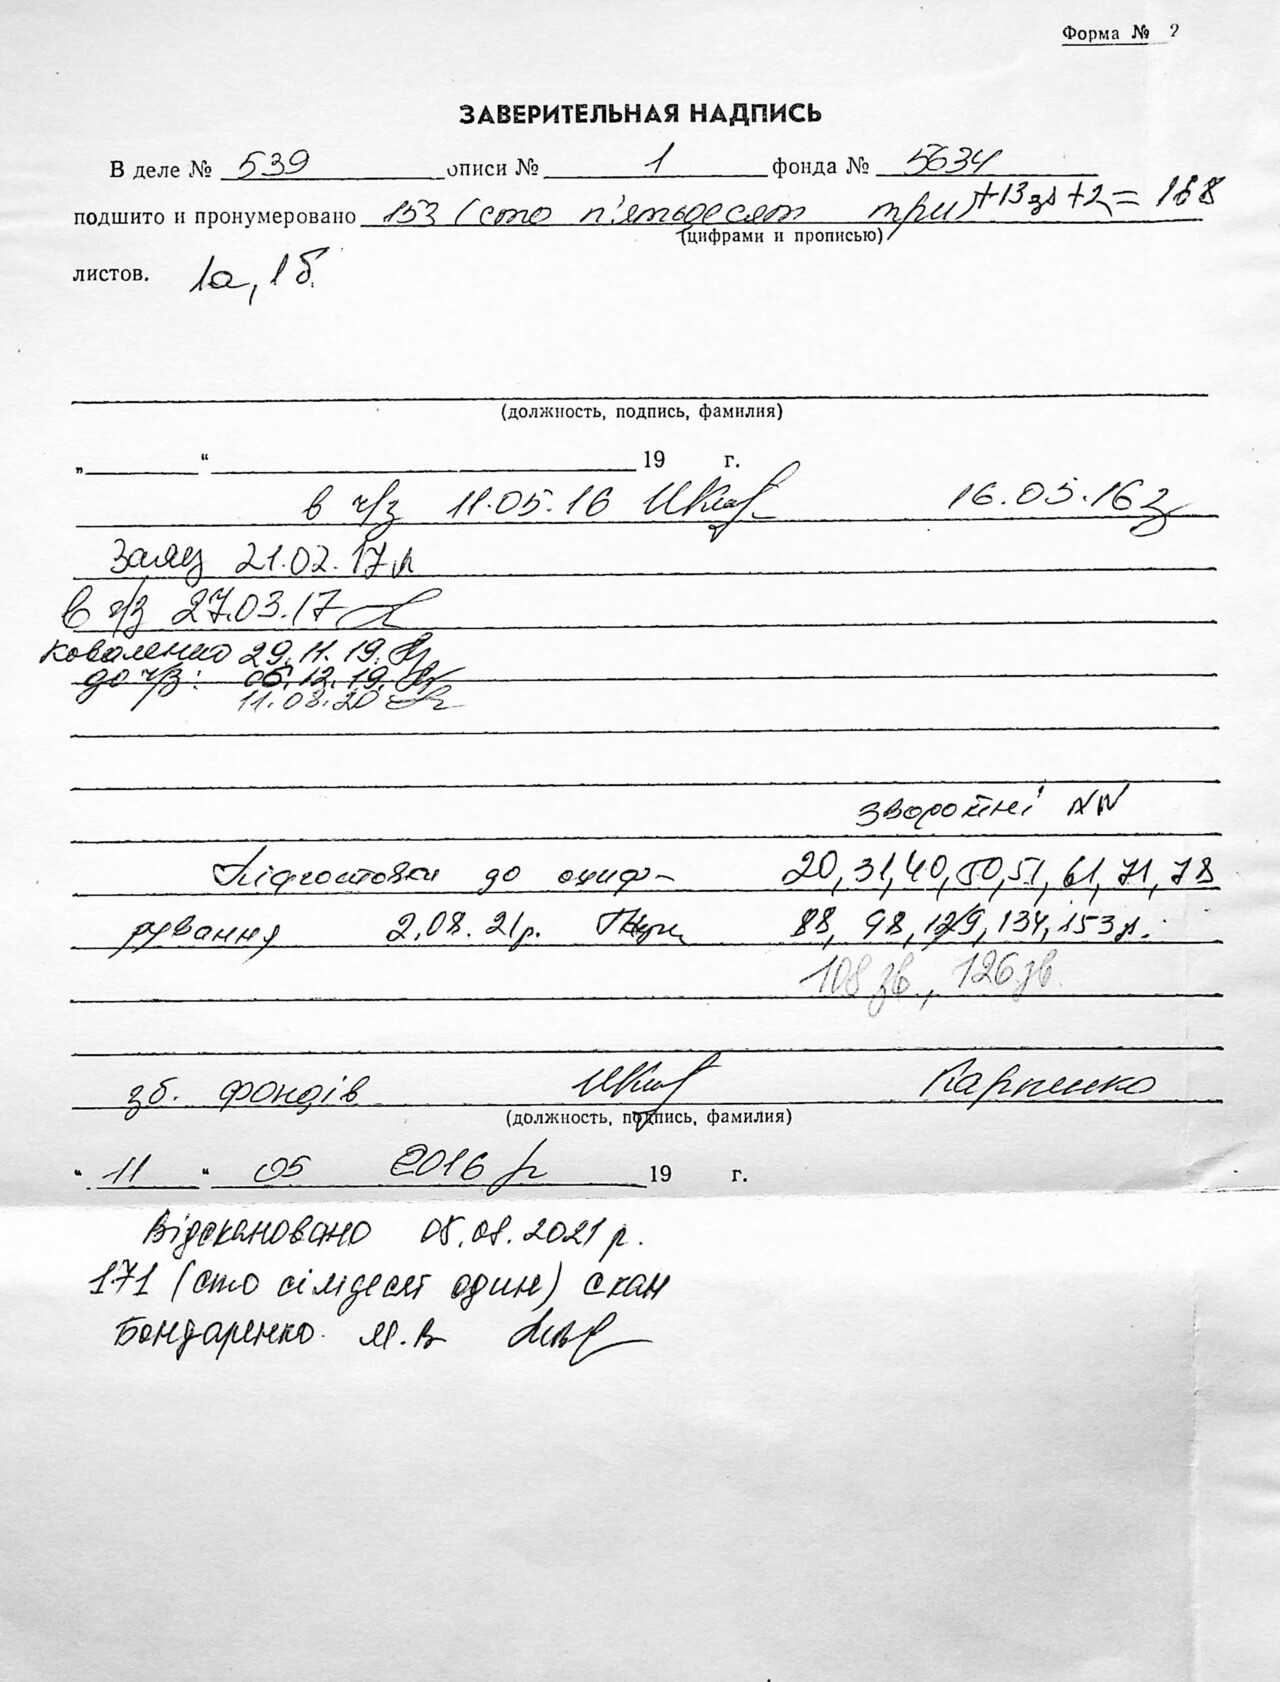 Форма № 2
ЗАВЕРИТЕЛЬНАЯ НАДПИСЬ
В деле № 539 описи № 1 фонда № 5634
подшито и пронумеровано 153 (сто п'ятьдесят три) +13зв +2 = 168
(цифрами и прописью)
листов. 1а, 1б
(должность, подпись, фамилия)
„ “ 19 г.
в ч/з 11.05.16 16.05.16
21.02.17
в ч/з 27.03.17
Коваленко 29.11.19.
до ч/з: 05.12.19.
11.08.20
зворотні NN
Підготовка до оциф- 20, 31, 40, 50, 51, 61, 71, 78
рування 2.08.21р. 88, 98, 129, 134, 153
108 зв., 126 зв.
зб. фондів Карпенко
(должность, подпись, фамилия)
“ 11 “ 05 2016 р 19 г.
Відскановано 05.08.2021 р.
171 (сто сімдесят один) скан
Бондаренко М.В